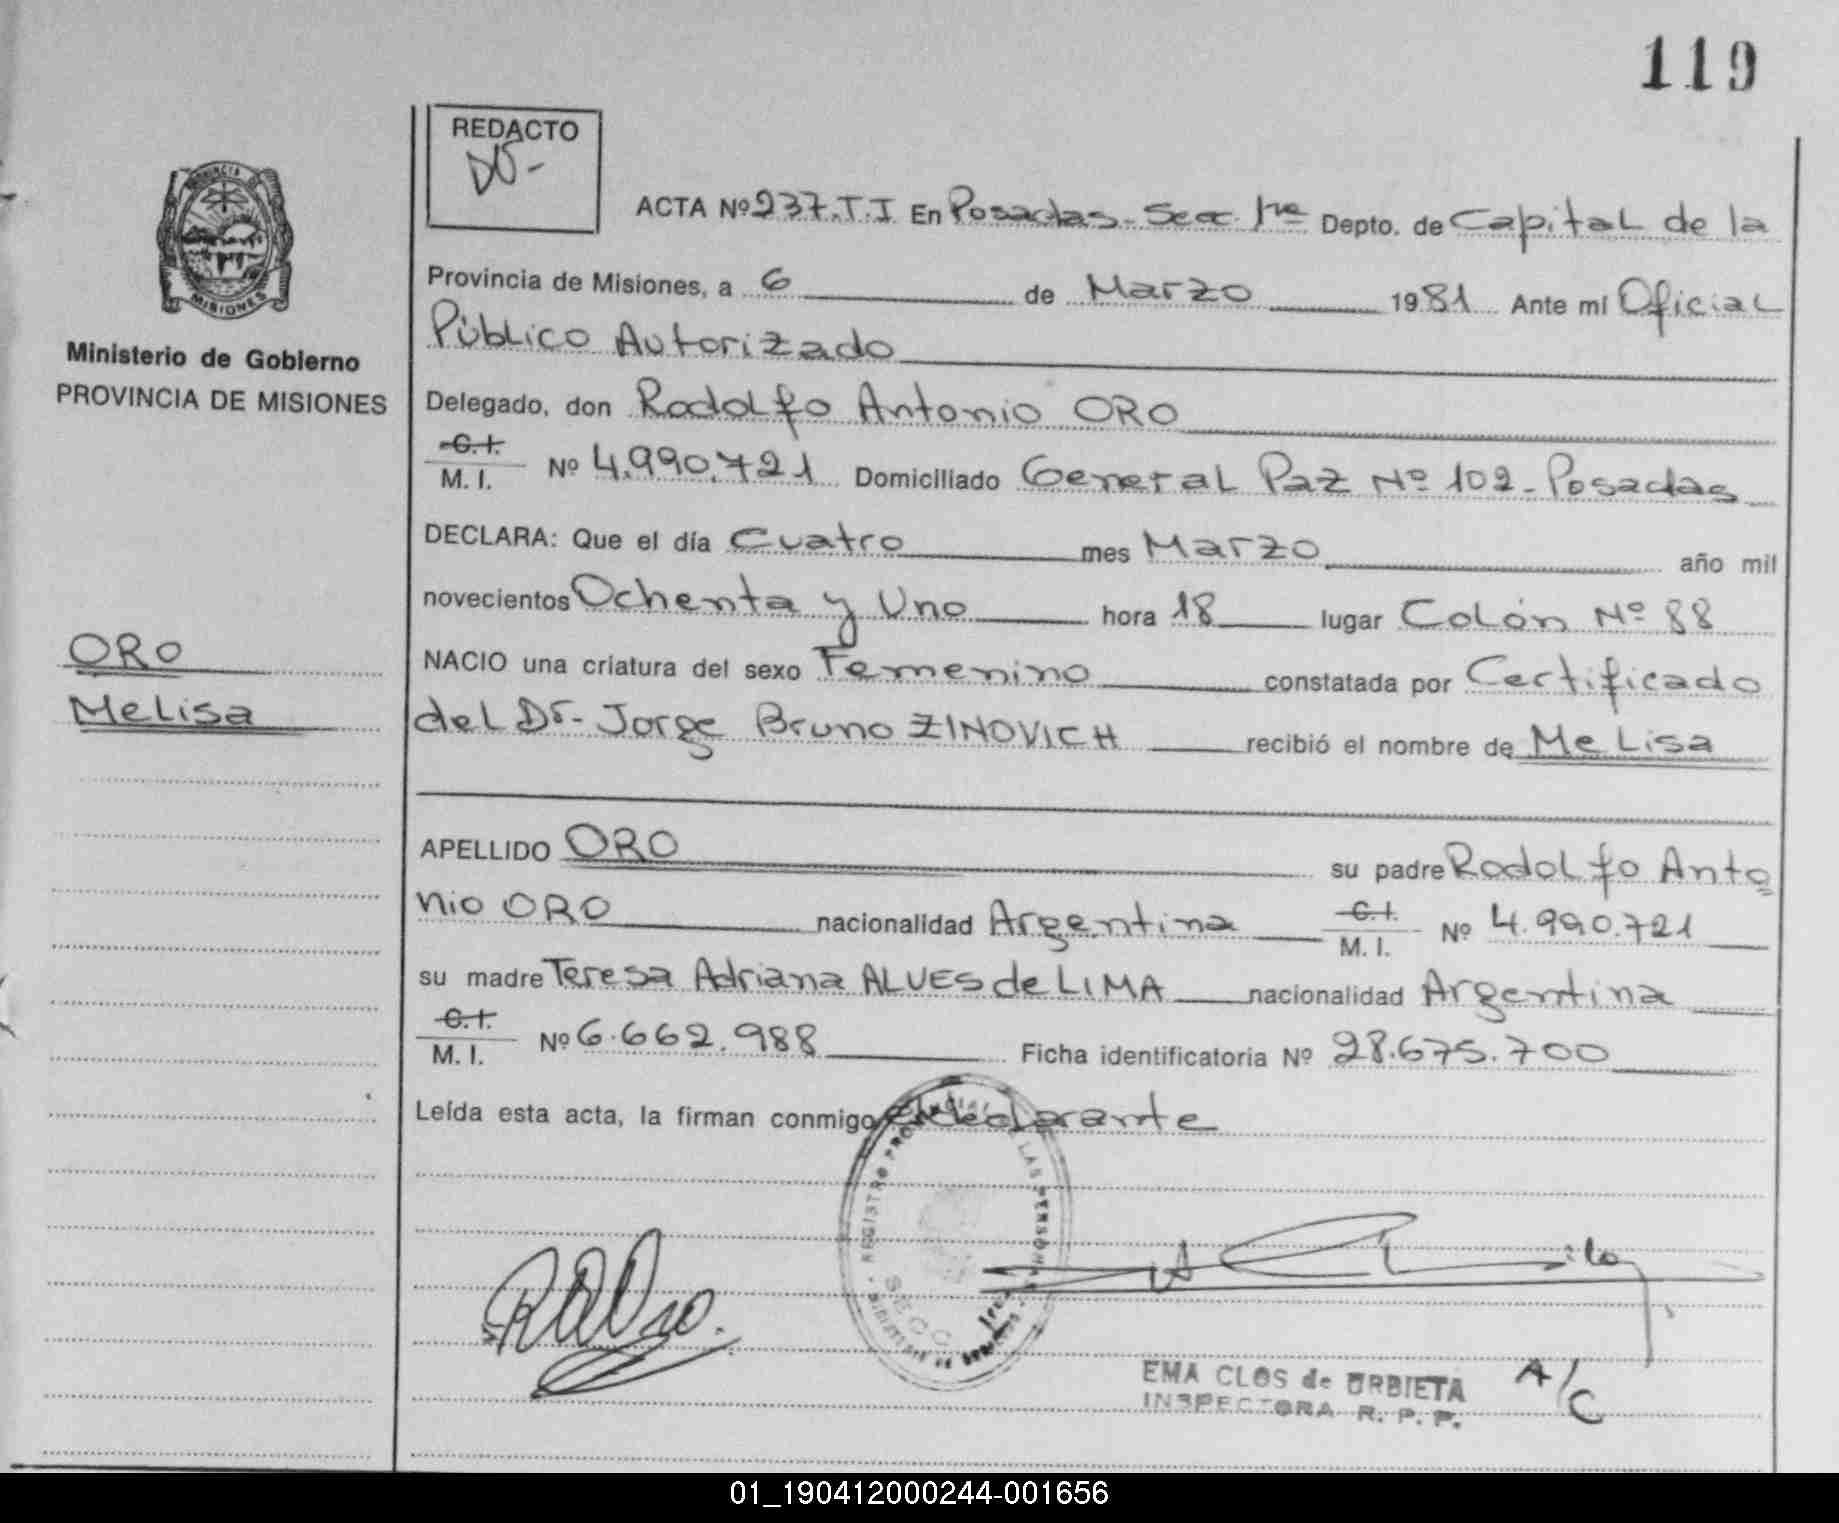 119
REDACTO
ACTA Nº 237.T.I En Posadas - Secc. 1ra Depto. de Capital de la
Provincia de Misiones, a 6 de Marzo 1981 Ante mí Oficial
Público Autorizado
Delegado, don Rodolfo Antonio ORO
C.I.
M. I. Nº 4.990.721 Domiciliado General Paz Nº 102 - Posadas
DECLARA: Que el día Cuatro mes Marzo año mil
novecientos Ochenta y Uno hora 18 lugar Colón Nº 88
NACIO una criatura del sexo Femenino constatada por Certificado
del Dr. Jorge Bruno ZINOVICH recibió el nombre de Melisa
APELLIDO ORO su padre Rodolfo Anto
nio ORO nacionalidad Argentina C.I.
M. I. Nº 4.990.721
su madre Teresa Adriana ALVES de LIMA nacionalidad Argentina
C.I.
M. I. Nº 6.662.988 Ficha identificatoria Nº 28.675.700
Leída esta acta, la firman conmigo el declarante
PROVINCIA DE
MISIONES
Ministerio de Gobierno
PROVINCIA DE MISIONES
ORO
Melisa
REGISTRO PROVINCIAL DE LAS PERSONAS
SECC. 1ra
EMA CLOS de URBIETA
INSPECTORA R. P. P.
A/C
01_190412000244-001656